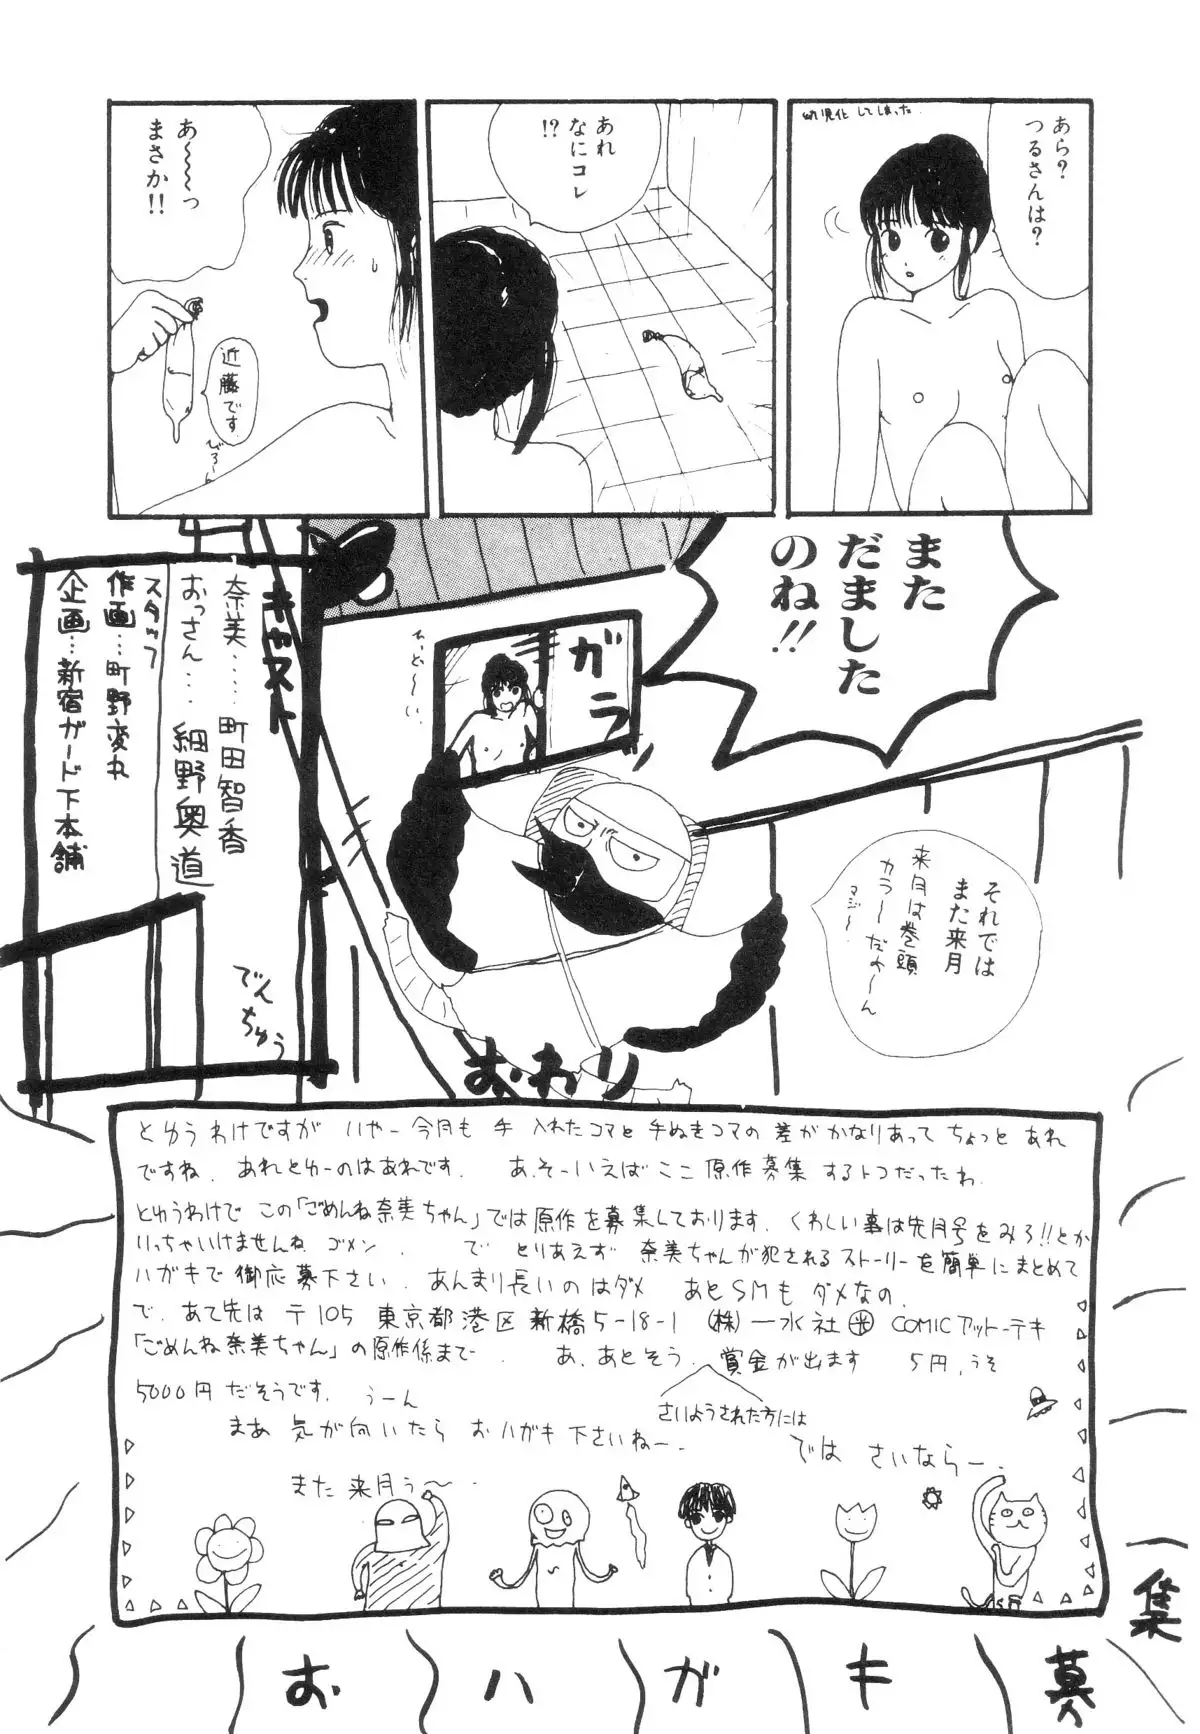 幼児化してしまった
あら?
つるさんは?
あれ
なにコレ
!?
あ〜〜〜っ
まさか!!
近藤です
びろ〜ん
また
だました
のね!!
ガラッ
キャスト
奈美……町田智香
おっさん…細野奥道
スタッフ
作画…町野変丸
企画…新宿ガード下本舗
でんちゅう
それでは
また来月
来月は巻頭
カラーだょ〜ん
マジ〜
おわり
とゆうわけですが いやー今月も 手入れたコマと手ぬきコマの差がかなりあって ちょっとあれ
ですね。あれとゆーのはあれです。 あ、そーいえば ここ原作募集するトコだったわ。
とゆうわけで この「ごめんね奈美ちゃん」では原作を募集しております。くわしい事は先月号をみろ!!とか
いっちゃいけませんね ゴメン。 で とりあえず 奈美ちゃんが犯されるストーリーを簡単にまとめて
ハガキで御応募下さい。あんまり長いのはダメ あとSMもダメなの。
で、あて先は 〒105 東京都港区新橋5-18-1 (株)一水社 COMICアットーテキ
「ごめんね奈美ちゃん」の原作係まで。 あ、あとそう、賞金が出ます 5円、うそ
さいようされた方には
5000円だそうです。 うーん
まあ 気が向いたら おハガキ下さいねー。
では さいならー。
また来月ぅ〜
おハガキ募集